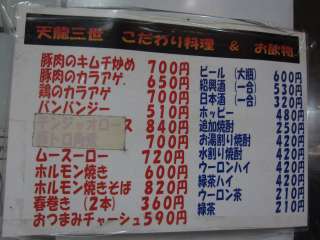 天龍三世 こだわり料理 & お飲物
豚肉のキムチ炒め 700円
豚肉のカラアゲ 650円
鶏のカラアゲ 700円
バンバンジー 510円
チンジャオロース 840円
700円
ムースーロー 720円
ホルモン焼き 600円
ホルモン焼きそば 820円
春巻き(2本) 360円
おつまみチャーシュ 590円
ビール(大瓶) 600円
紹興酒(一合) 530円
日本酒(一合) 320円
ホッピー 480円
追加焼酎 250円
お湯割り焼酎 420円
水割り焼酎 420円
ウーロンハイ 420円
緑茶ハイ 420円
ウーロン茶 210円
緑茶 210円